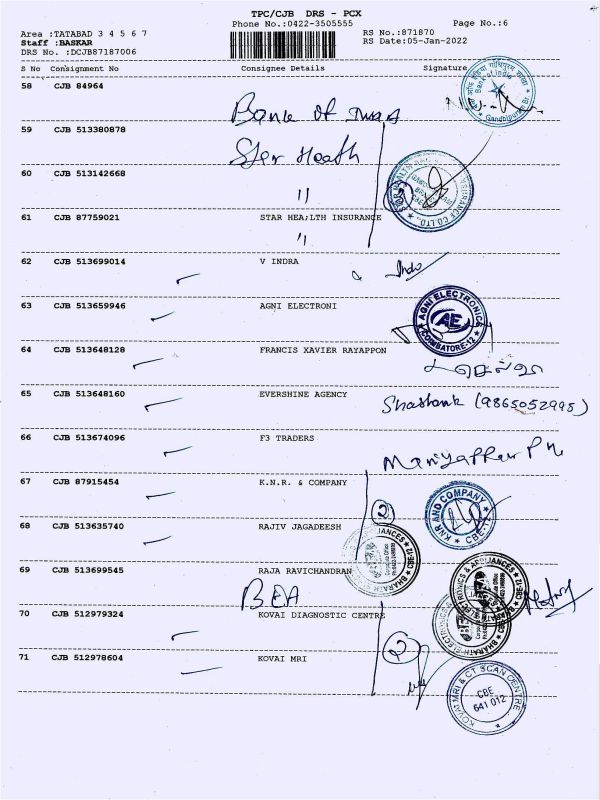 TPC/CJB DRS - PCX
Phone No.:0422-3505555
Page No.:6
Area :TATABAD 3 4 5 6 7
RS No.:871870
Staff :BASKAR
RS Date:05-Jan-2022
DRS No. :DCJB87187006
S No Consignment No Consignee Details Signature
58 CJB 84964
Bank of
Bank of India
Gandhipuram Br
59 CJB 513380878
Star Heath
60 CJB 513142668
"
61 CJB 87759021 STAR HEA;LTH INSURANCE
"
62 CJB 513699014 V INDRA
63 CJB 513659946 AGNI ELECTRONI
AGNI ELECTRONICS
AE
COIMBATORE-12
64 CJB 513648128 FRANCIS XAVIER RAYAPPON
65 CJB 513648160 EVERSHINE AGENCY
Shashank (9865052995)
66 CJB 513674096 F3 TRADERS
67 CJB 87915454 K.N.R. & COMPANY
KNR AND COMPANY
CBE
2
68 CJB 513635740 RAJIV JAGADEESH
69 CJB 513699545 RAJA RAVICHANDRAN
BEA
70 CJB 512979324 KOVAI DIAGNOSTIC CENTRE
2
71 CJB 512978604 KOVAI MRI
KOVAI MRI & CT SCAN CENTRE
CBE
641 012